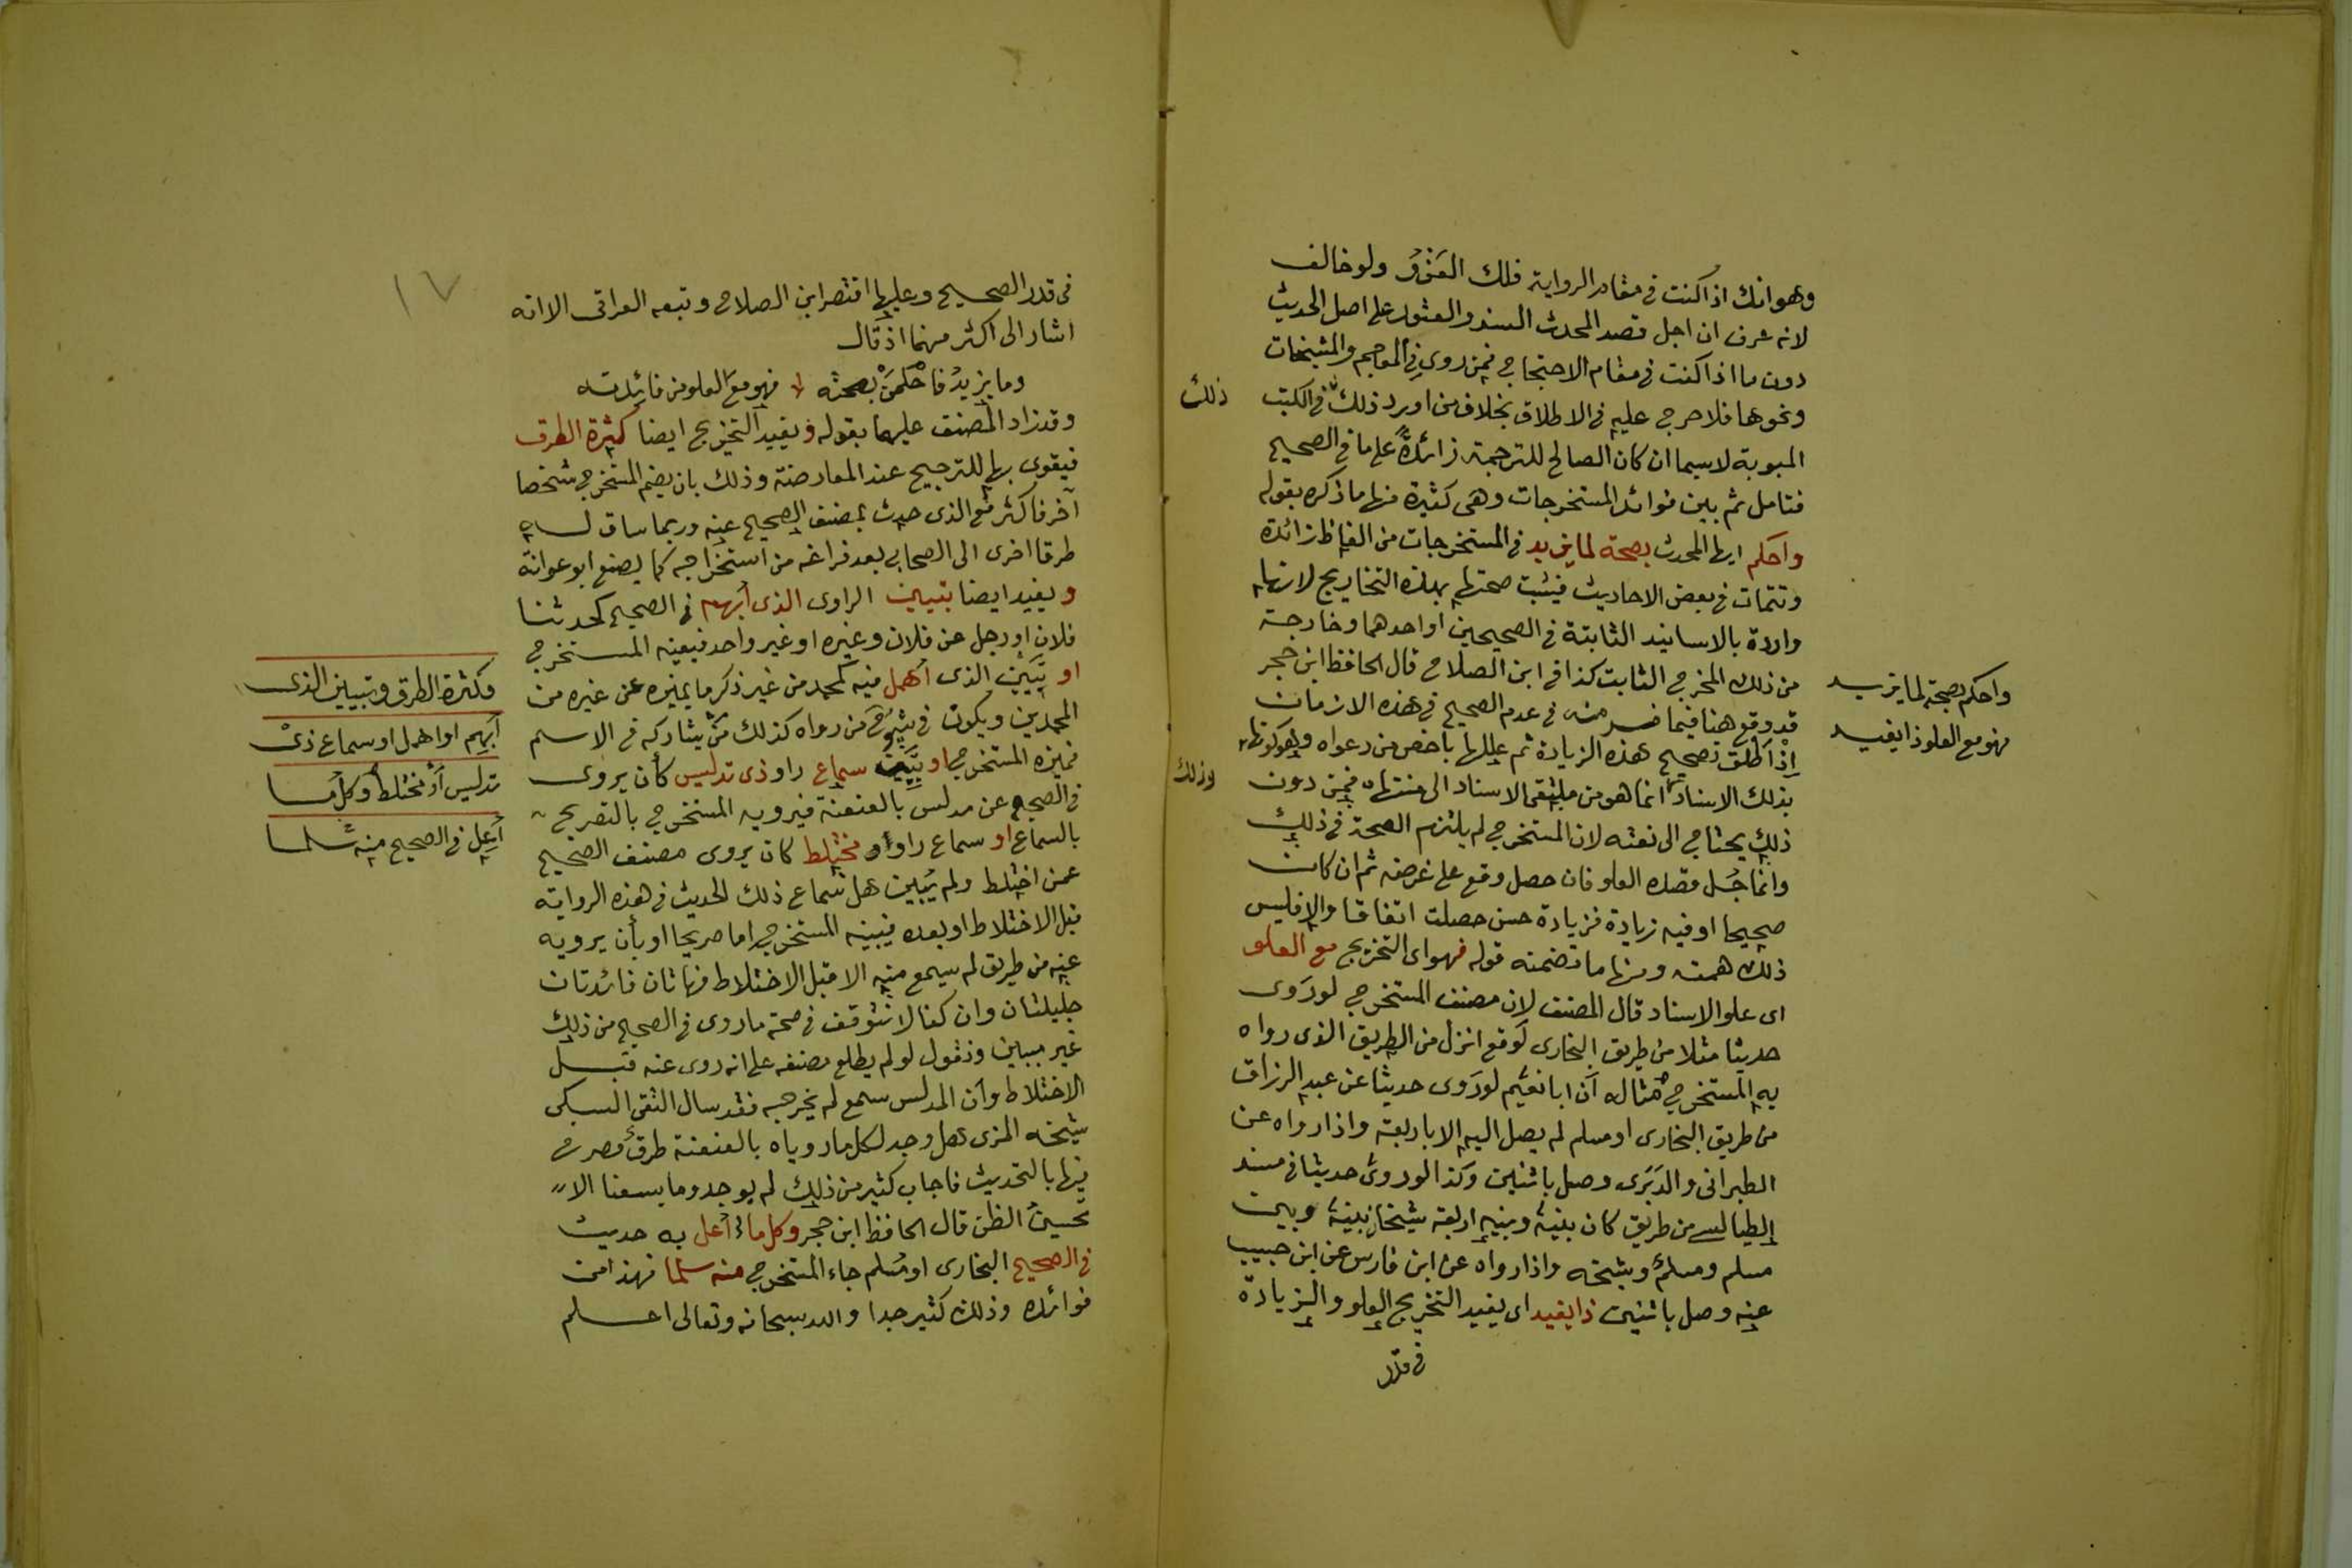 وهو انك اذا كنت في مقام الرواية فلك العَزْوُ ولو خالف
لانه عرف ان اجل قصد المحدث السند والعثور على اصل الحديث
دون ما اذا كنت في مقام الاحتجاج فمن روى في المعاجم والمشيخات
ونحوها فلا حرج عليه في الاطلاق بخلاف من اورد ذلك في الكتب
ذلك
المبوبة لاسيما ان كان الصالح للترجمة زائدةً على ما في الصحيح
فتامل ثم بين فوائد المستخرجات وهى كثيرة منها ما ذكره بقوله
واحكم ايها المحدث بصحة لما يزيد في المستخرجات من الفاظ زائدة
وتتمات في بعض الاحاديث فيثبت صحتها بهذه التخاريج لانها
واردة بالاسانيد الثابتة في الصحيحين او احدهما وخارجة
من ذلك المخرج الثابت كذا في ابن الصلاح قال الحافظ ابن حجر
قد وقع هنا فيما فسر منه في عدم الصحيح في هذه الازمان
اذ اطلق تصحيح هذه الزيادة ثم عللها باخص من دعواه وهو كونها
بذلك الاسناد انما هو من ملتقى الاسناد الى منتهاه فمن دون
وذلك
ذلك يحتاج الى نقله لان المستخرج لم يلتزم الصحة في ذلك
وانما جُل قصده العلو فان حصل وقع على غرضه ثم ان كان
صحيحا او فيه زيادة فزيادة حسن حصلت اتفاقا والا فليس
ذلك همته ومنها ما تضمنه قوله فهو اى التخريج مع العلو
اى علو الاسناد قال المصنف لان مصنف المستخرج لو رَوى
حديثا مثلا من طريق البخارى لوقع انزل من الطريق الذى رواه
به المستخرج مثاله أن ابا نعيم لو رَوى حديثا عن عبد الرزاق
من طريق البخارى او مسلم لم يصل اليه الا باربعة واذا رواه عن
الطبرانى والدَبَرى وصل باثنين وكذا لو روى حديثا في مسند
الطيالسى من طريق كان بينه وبينه اربعة شيخان بينه وبين
مسلم ومسلم وشيخه واذا رواه عن ابن فارس عن ابن حبيب
عنه وصل باثنين ذا يفيد اى يفيد التخريج العلو والزيادة
في قدر
واحكم بصحة لما يزيد
فهو مع العلو ذا يفيد
١٧
فى قدر الصحيح وعليها اقتصر ابن الصلاح وتبعه العراقى الا انه
اشار الى اكثر منهما اذ قال
وما يزيدُ فاحْكُمَنْ بصحته فهو مع العلو من فائدته
وقد زاد المصنف عليهما بقوله ويفيد التخريج ايضا كثرة الطرق
فيقوى بها للترجيح عند المعارضة وذلك بان يضم المستخرج شخصا
آخر فاكثر مع الذى حدث مصنف الصحيح عنه وربما ساق له
طرقا اخرى الى الصحابى بعد فراغه من استخراجه كما يصنع ابو عوانة
ويفيد ايضا تبيين الراوى الذى أبهم في الصحيح كحدثنا
فلان او رجل عن فلان وغيره او غير واحد فيعينه المستخرج
او تبيين الذى أهمل فيه كمحمد من غير ذكر ما يميزه عن غيره من
المحمدين ويكون في شيوخ من رواه كذلك من يشاركه في الاسم
فميزه المستخرج او تبيين سماع راو ذى تدليس كأن يروى
في الصحيح عن مدلس بالعنعنة فيرويه المستخرج بالتصريح
بالسماع او سماع راو او مختلط كان يروى مصنف الصحيح
عمن اختلط ولم يُبين هل سماع ذلك الحديث في هذه الرواية
قبل الاختلاط او بعده فيبينه المستخرج اما صريحا او بأن يرويه
عنه من طريق لم يسمع منه الا قبل الاختلاط فهاتان فائدتان
جليلتان وان كنا لا نتوقف في صحة ما روى في الصحيح من ذلك
غير مبين ونقول لو لم يطلع مصنفه على انه روى عنه قبل
الاختلاط وأن المدلس سمع لم يخرجه فقد سال التقى السبكى
شيخه المزى هل وجد لكل ما روياه بالعنعنة طرق صرح
فيها بالتحديث فاجاب كثير من ذلك لم يوجد وما يسعنا الا
تحسينُ الظن قال الحافظ ابن حجر وكل ما أعل به حديث
في الصحيح البخارى او مسلم جاء المستخرج منه سلما فهذا من
فوائده وذلك كثير جدا والله سبحانه وتعالى اعلم
وكثرة الطرق وتبيين الذى
أبهم او اهمل او سماع ذى
تدليس أو مختلط وكل ما
أعل في الصحيح منه سلما